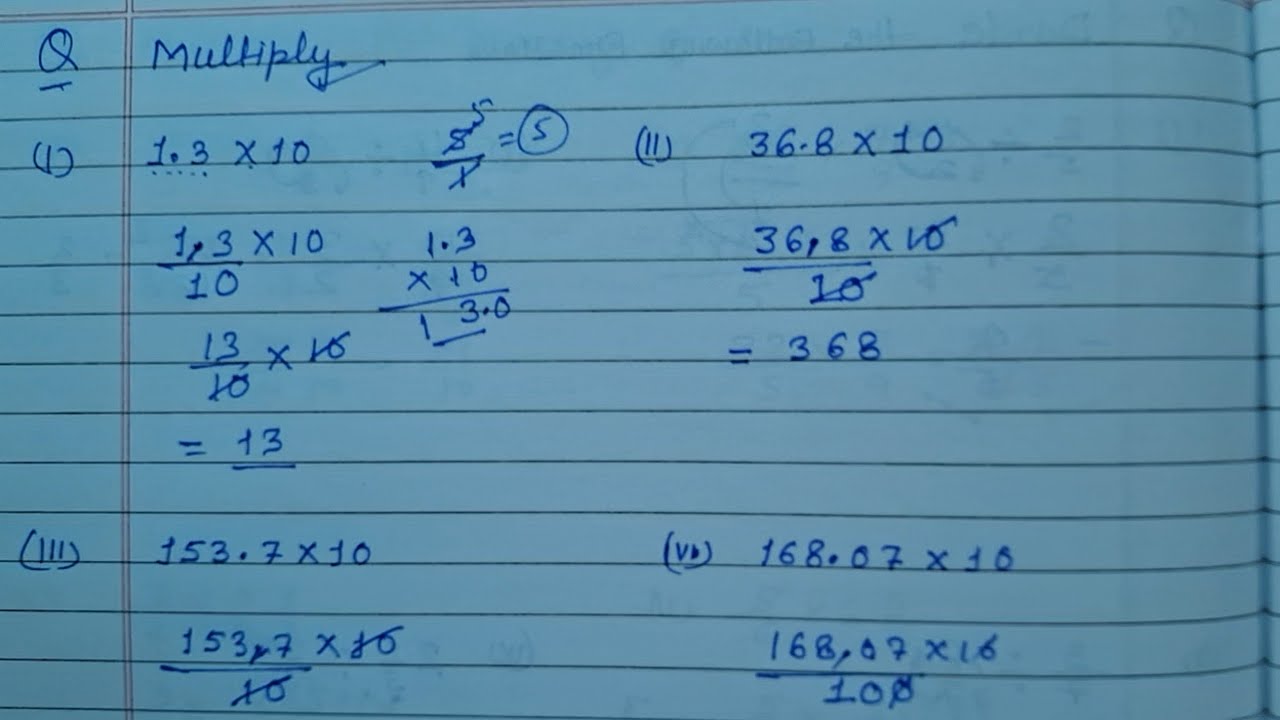 Q Multiply
(I) 1.3 × 10
1.3 × 10
10
13 × 10
10
= 13
5
5 = 5
1
1.3
× 10
1 3.0
(II) 36.8 × 10
36.8 × 10
10
= 368
(III) 153.7 × 10
153.7 × 10
10
168.07 × 10
168.07 × 10
100